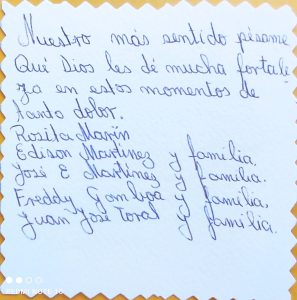 Nuestro más sentido pésame
Qué Dios les dé mucha fortale
za en estos momentos de
tanto dolor.
Rosita Marín
Edison Martínez y familia.
José E Martínez y familia.
Freddy Gamboa y familia,
Juan José Toral y familia.